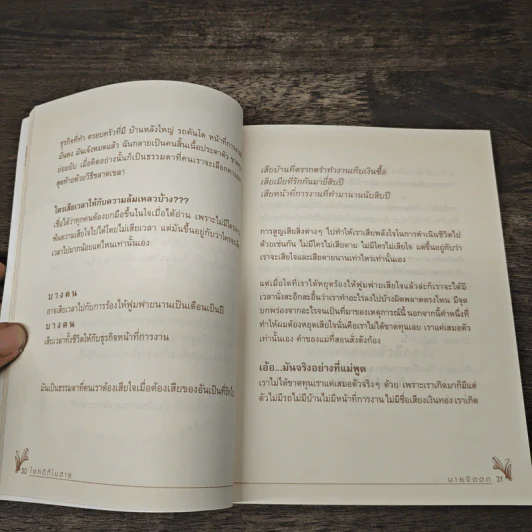 ธุรกิจที่ทำ ครอบครัวที่มี บ้านหลังใหญ่ รถคันโต หน้าที่การงาน
มั่นคง มันเจ๊งหมดแล้ว ฉันกลายเป็นคนสิ้นเนื้อประดาตัว
ย่อยยับ เมื่อคิดอย่างนั้นก็เป็นธรรมดาที่คนเราจะเลือก
สุดท้ายด้วยวิธีขลาดเขลา
ใครเสียเวลาให้กับความล้มเหลวบ้าง???
เชื่อได้ว่าทุกคนต้องยกมือขึ้นในใจเมื่อได้อ่าน เพราะไม่มีใคร
พ้นความเสียใจไปได้โดยไม่เสียเวลา แต่มันขึ้นอยู่กับว่าใครจะ
เวลาไปมากน้อยแค่ไหนเท่านั้นเอง
บางคน
อาจเสียเวลาไปกับการร้องไห้ฟูมฟายนานเป็นเดือนเป็นปี
บางคน
เสียเวลาทั้งชีวิตให้กับธุรกิจหน้าที่การงาน
มันเป็นธรรมดาที่คนเราต้องเสียใจเมื่อต้องเสียของอันเป็นที่รักไป
30 โชคดีที่ไม่ตาย
เสียบ้านที่ตรากตรำทำงานเก็บเงินซื้อ
เสียเมียที่รักกันมายี่สิบปี
เสียหน้าที่การงานที่ทำมานานนับสิบปี
การสูญเสียสิ่งต่างๆ ไปทำให้เราเสียพลังใจในการดำเนินชีวิตไป
ด้วยเช่นกัน ไม่มีใครไม่เสียดาย ไม่มีใครไม่เสียใจ แต่ขึ้นอยู่กับว่า
เราจะเสียใจและเสียดายนานเท่าไหร่เท่านั้นเอง
แต่เมื่อใดที่เราได้หยุดร้องไห้ฟูมฟายเสียใจแล้วล่ะก็เราจะได้มี
เวลานั่งสะอึกสะอื้นว่าเราทำอะไรลงไปบ้างผิดพลาดตรงไหน มีจุด
ยกพร่องจากอะไรจนเป็นที่มาของเหตุการณ์นี้ นอกจากนี้คำหนึ่งที่
ทำให้ผมต้องหยุดเสียใจนั่นคือเราไม่ได้ขาดทุนเลย เราแค่เสมอตัว
เท่านั้นเอง คำของแม่ที่สอนสั่งดังก้อง
เอ้อ...มันจริงอย่างที่แม่พูด
เราไม่ได้ขาดทุนเราแค่เสมอตัวจริงๆ ด้วย เพราะเราเกิดมาก็มีแต่
ตัวไม่มีรถไม่มีบ้านไม่มีหน้าที่การงาน ไม่มีชื่อเสียงเงินทอง เราเกิด
31